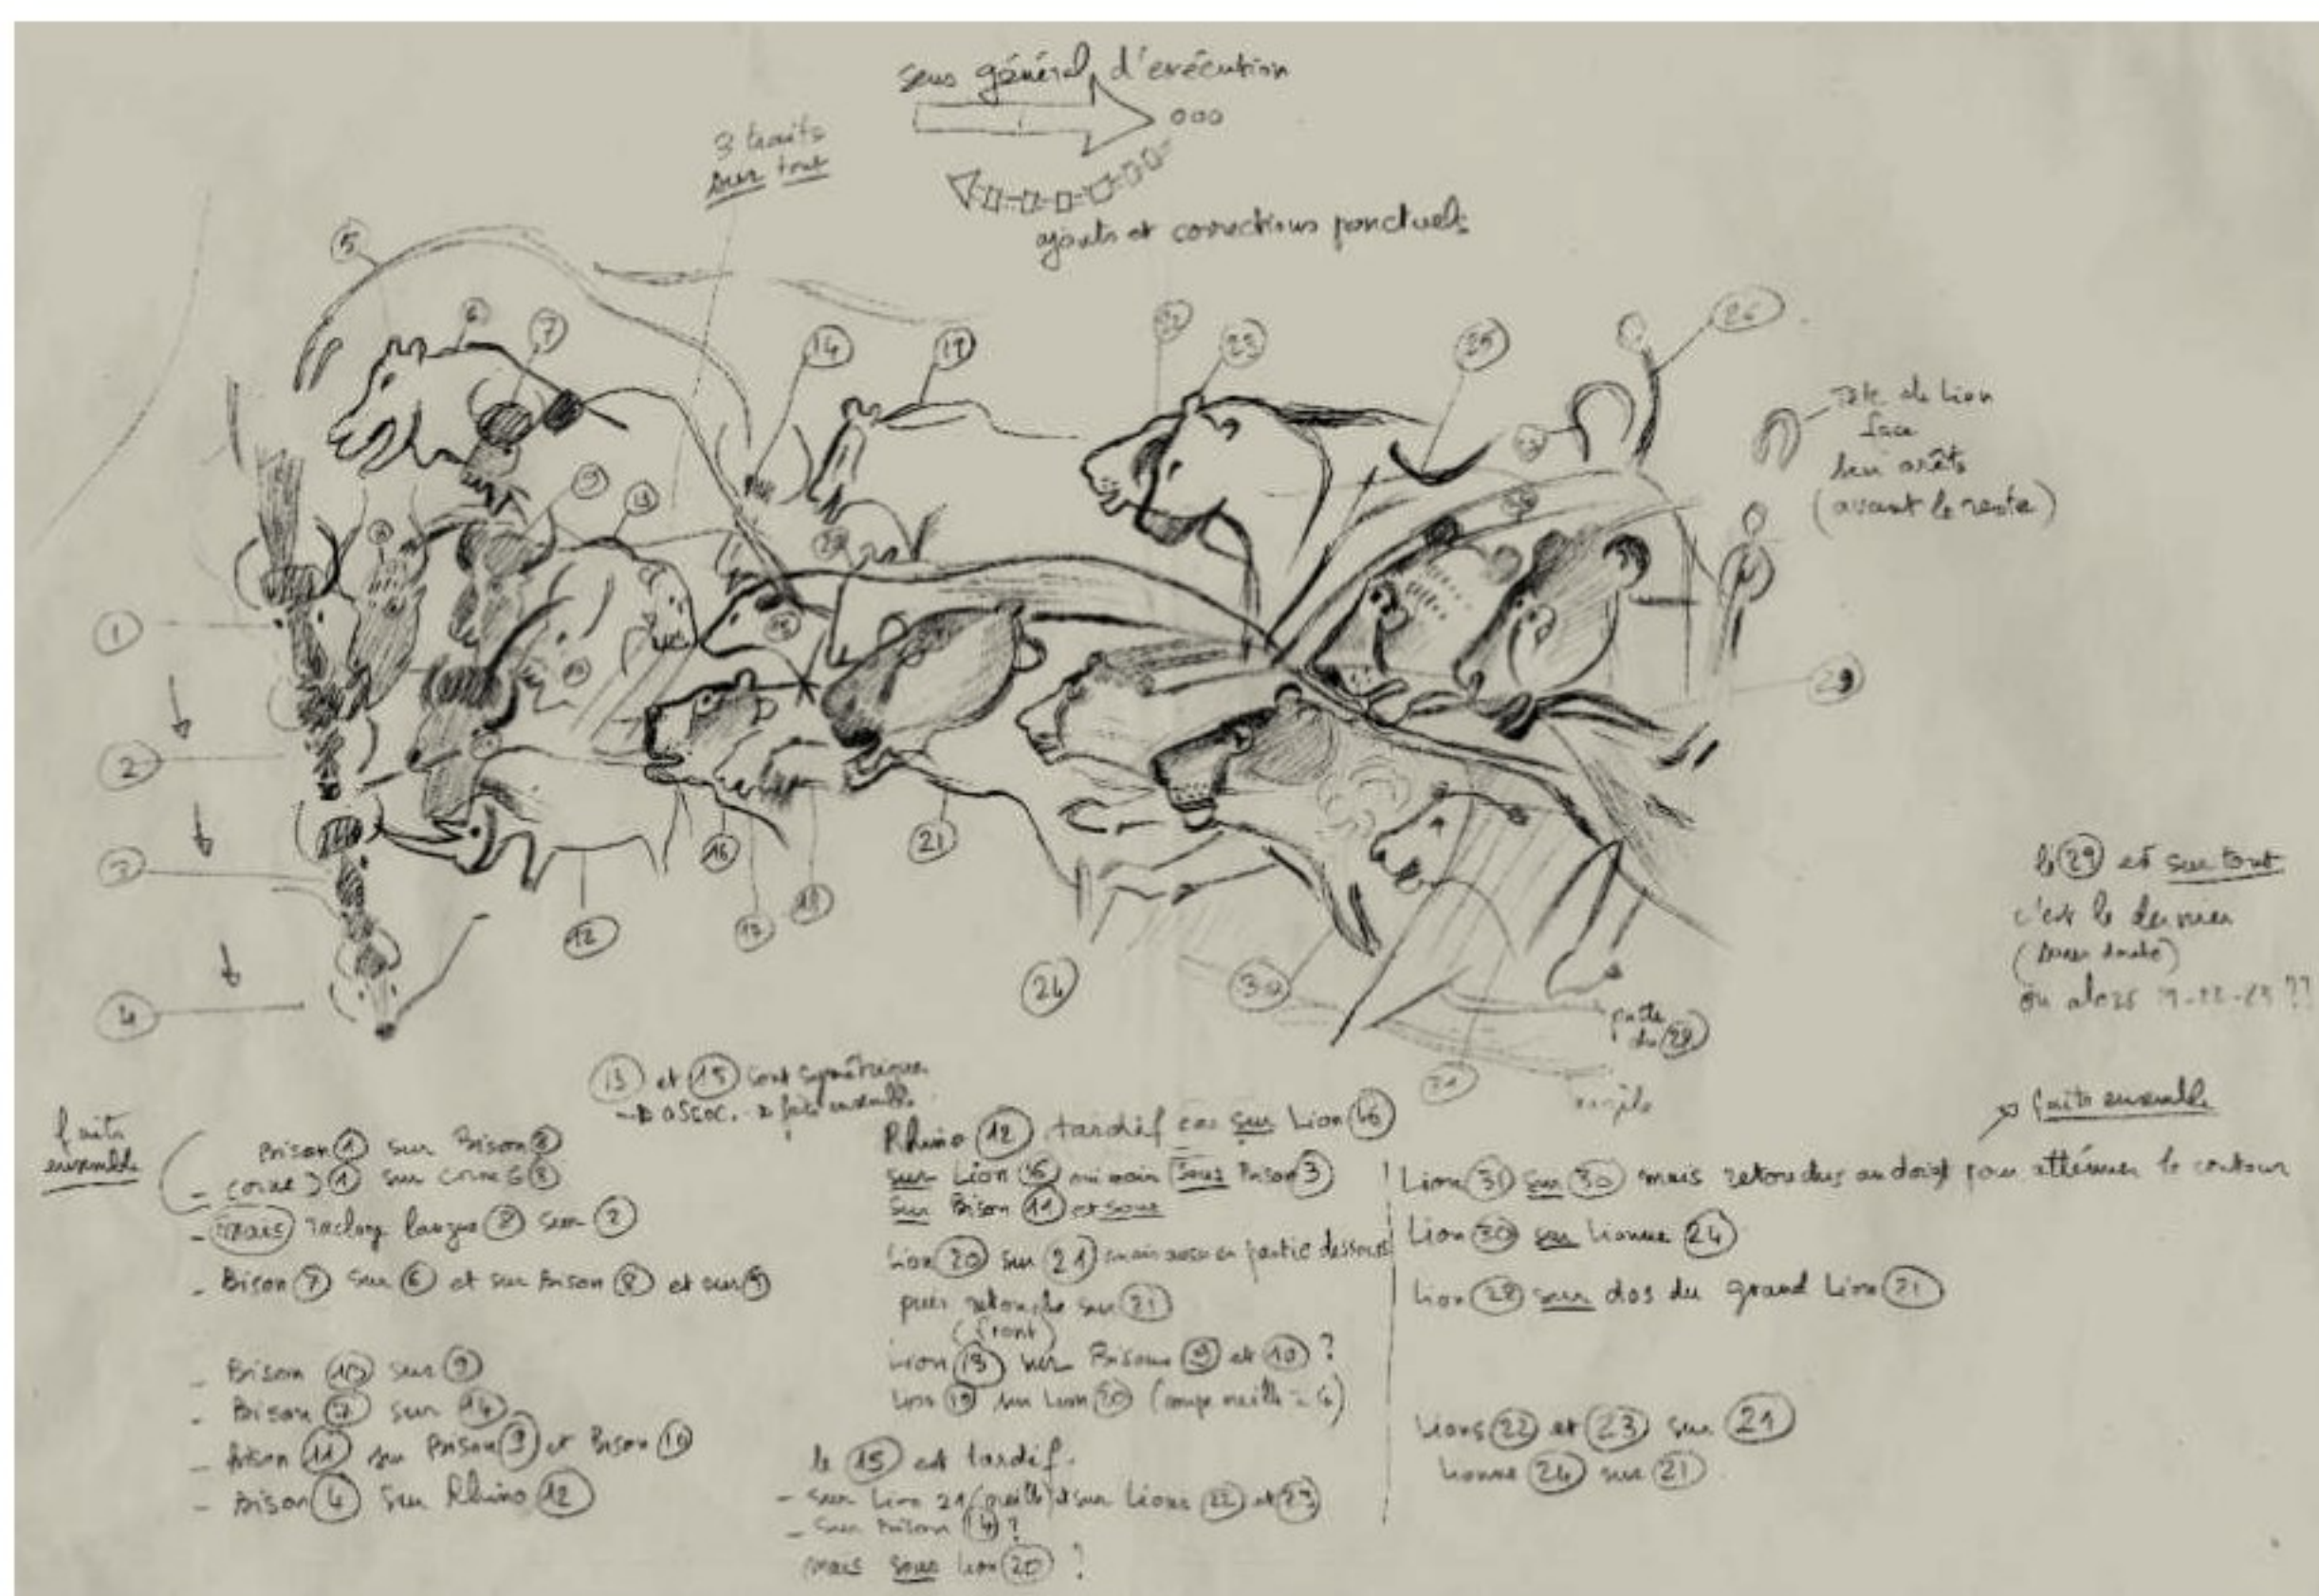 sens général d'exécution
3 traits
sur tout
ajouts et corrections ponctuels
5
6
7
14
19
22
23
25
26
Tête de Lion
face
(avant le reste)
1
2
3
4
12
16
17
18
21
24
30
31
29
patte
du 28
le 29 est sur tout
c'est le dernier
(sans doute)
ou alors
13 et 15 sont symétriques
→ assoc. → faits ensemble
faits
ensemble
Bison 1 sur Bison 8
- corne D 1 sur corne G 8
- Mais raclage langue 8 sur 2
- Bison 7 sur 6 et sur Bison 8 et sur 9
- Bison 10 sur 9
- Bison sur 14
- Bison 11 sur Bison 9 et Bison 10
- Bison 4 sur Rhino 12
Rhino 12 tardif car sur Lion 16
sur Lion 16 sous Bison 3
sur Bison 11 et sous
Lion 20 sur 21 mais aussi en partie dessous
puis retouche sur 21
(front)
Lion 13 sur Bisons 9 et 10 ?
Lion 19 sur Lion 20 (coupe oreille G)
le 15 est tardif.
- sur Lion 21 (oreille) et sur Lions 22 et 23
- sur Bison 14 ?
mais sous Lion 20 ?
faits ensemble
Lion 31 sur 30 mais retouches au doigt pour atténuer le contour
Lion 30 sur Lionne 24
Lion 28 sur dos du grand Lion 21
Lions 22 et 23 sur 21
Lionne 24 sur 21